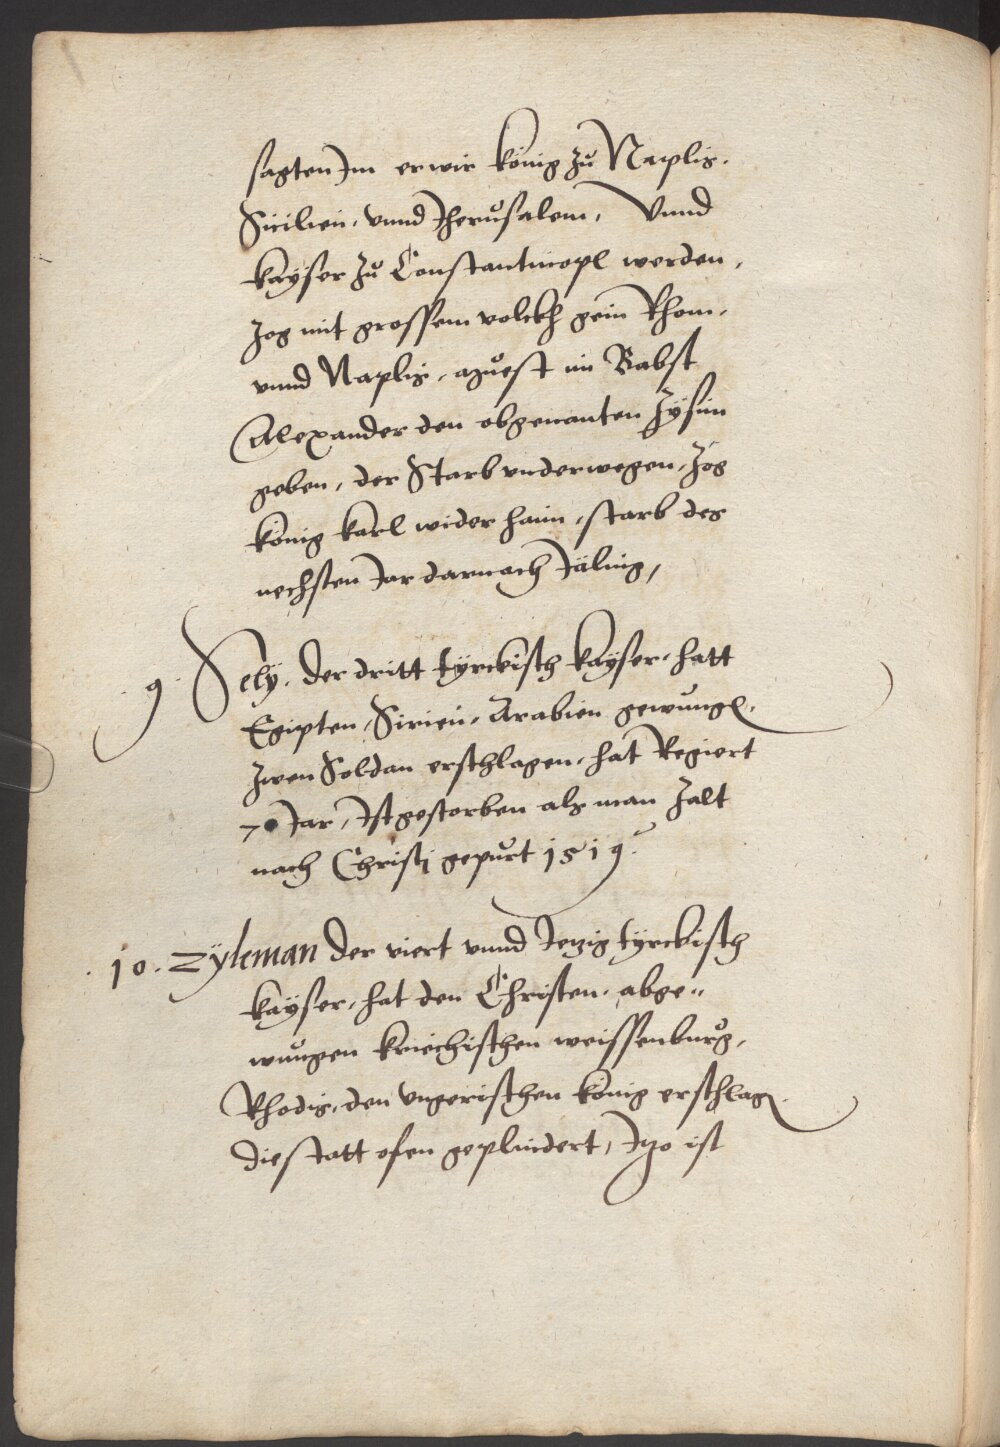 sagten Im er wir könig zů Naplis.
Sicilien, vnnd Jherůsalem, Vnnd
kayser zů Constantinopl werden,
zog mit grossem volckh gein Rhom,
vnnd Naplis, můest im Babst
Alexander den obgenanten Zÿsim
geben, der Starb vnderwegen, zog
könig karl wider haim, starb des
nechsten Jar darnach Jäling,
9. Sely. der dritt tÿrckisch kayser, hatt
Egipten, Sirien, Arabien gewůngen,
zwen Soldan erschlagen, hat Regiert
7 Jar, Ist gestorben als man zalt
nach Christi gepůrt 1519.
.10. Zÿleman der viert vnnd Jetzig tÿrckisch
kaÿser, hat den Christen, abge„
wůngen kriechischen weissenburg,
Rhodis, den vngerischen könig erschlagen
die statt ofen geplindert, Itzo ist